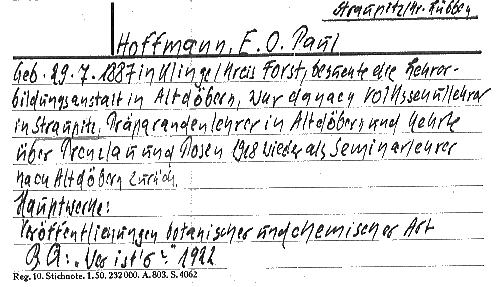 Straupitz/Kr. Lübben
Hoffmann, E. O. Paul
Geb. 29.7.1887 in Klinge/Kreis Forst, besuchte die Lehrer-
bildungsanstalt in Altdöbern, war danach Volksschullehrer
in Straupitz, Präparandenlehrer in Altdöbern und kehrte
über Prenzlau und Posen 1918 wieder als Seminarlehrer
nach Altdöbern zurück.
Hauptwerke:
Veröffentlichungen botanischer und chemischer Art
BQ: "Wer ist's?" 1922
Reg. 10. Stichnote. 1. 50. 232000. A. 803. S. 4062